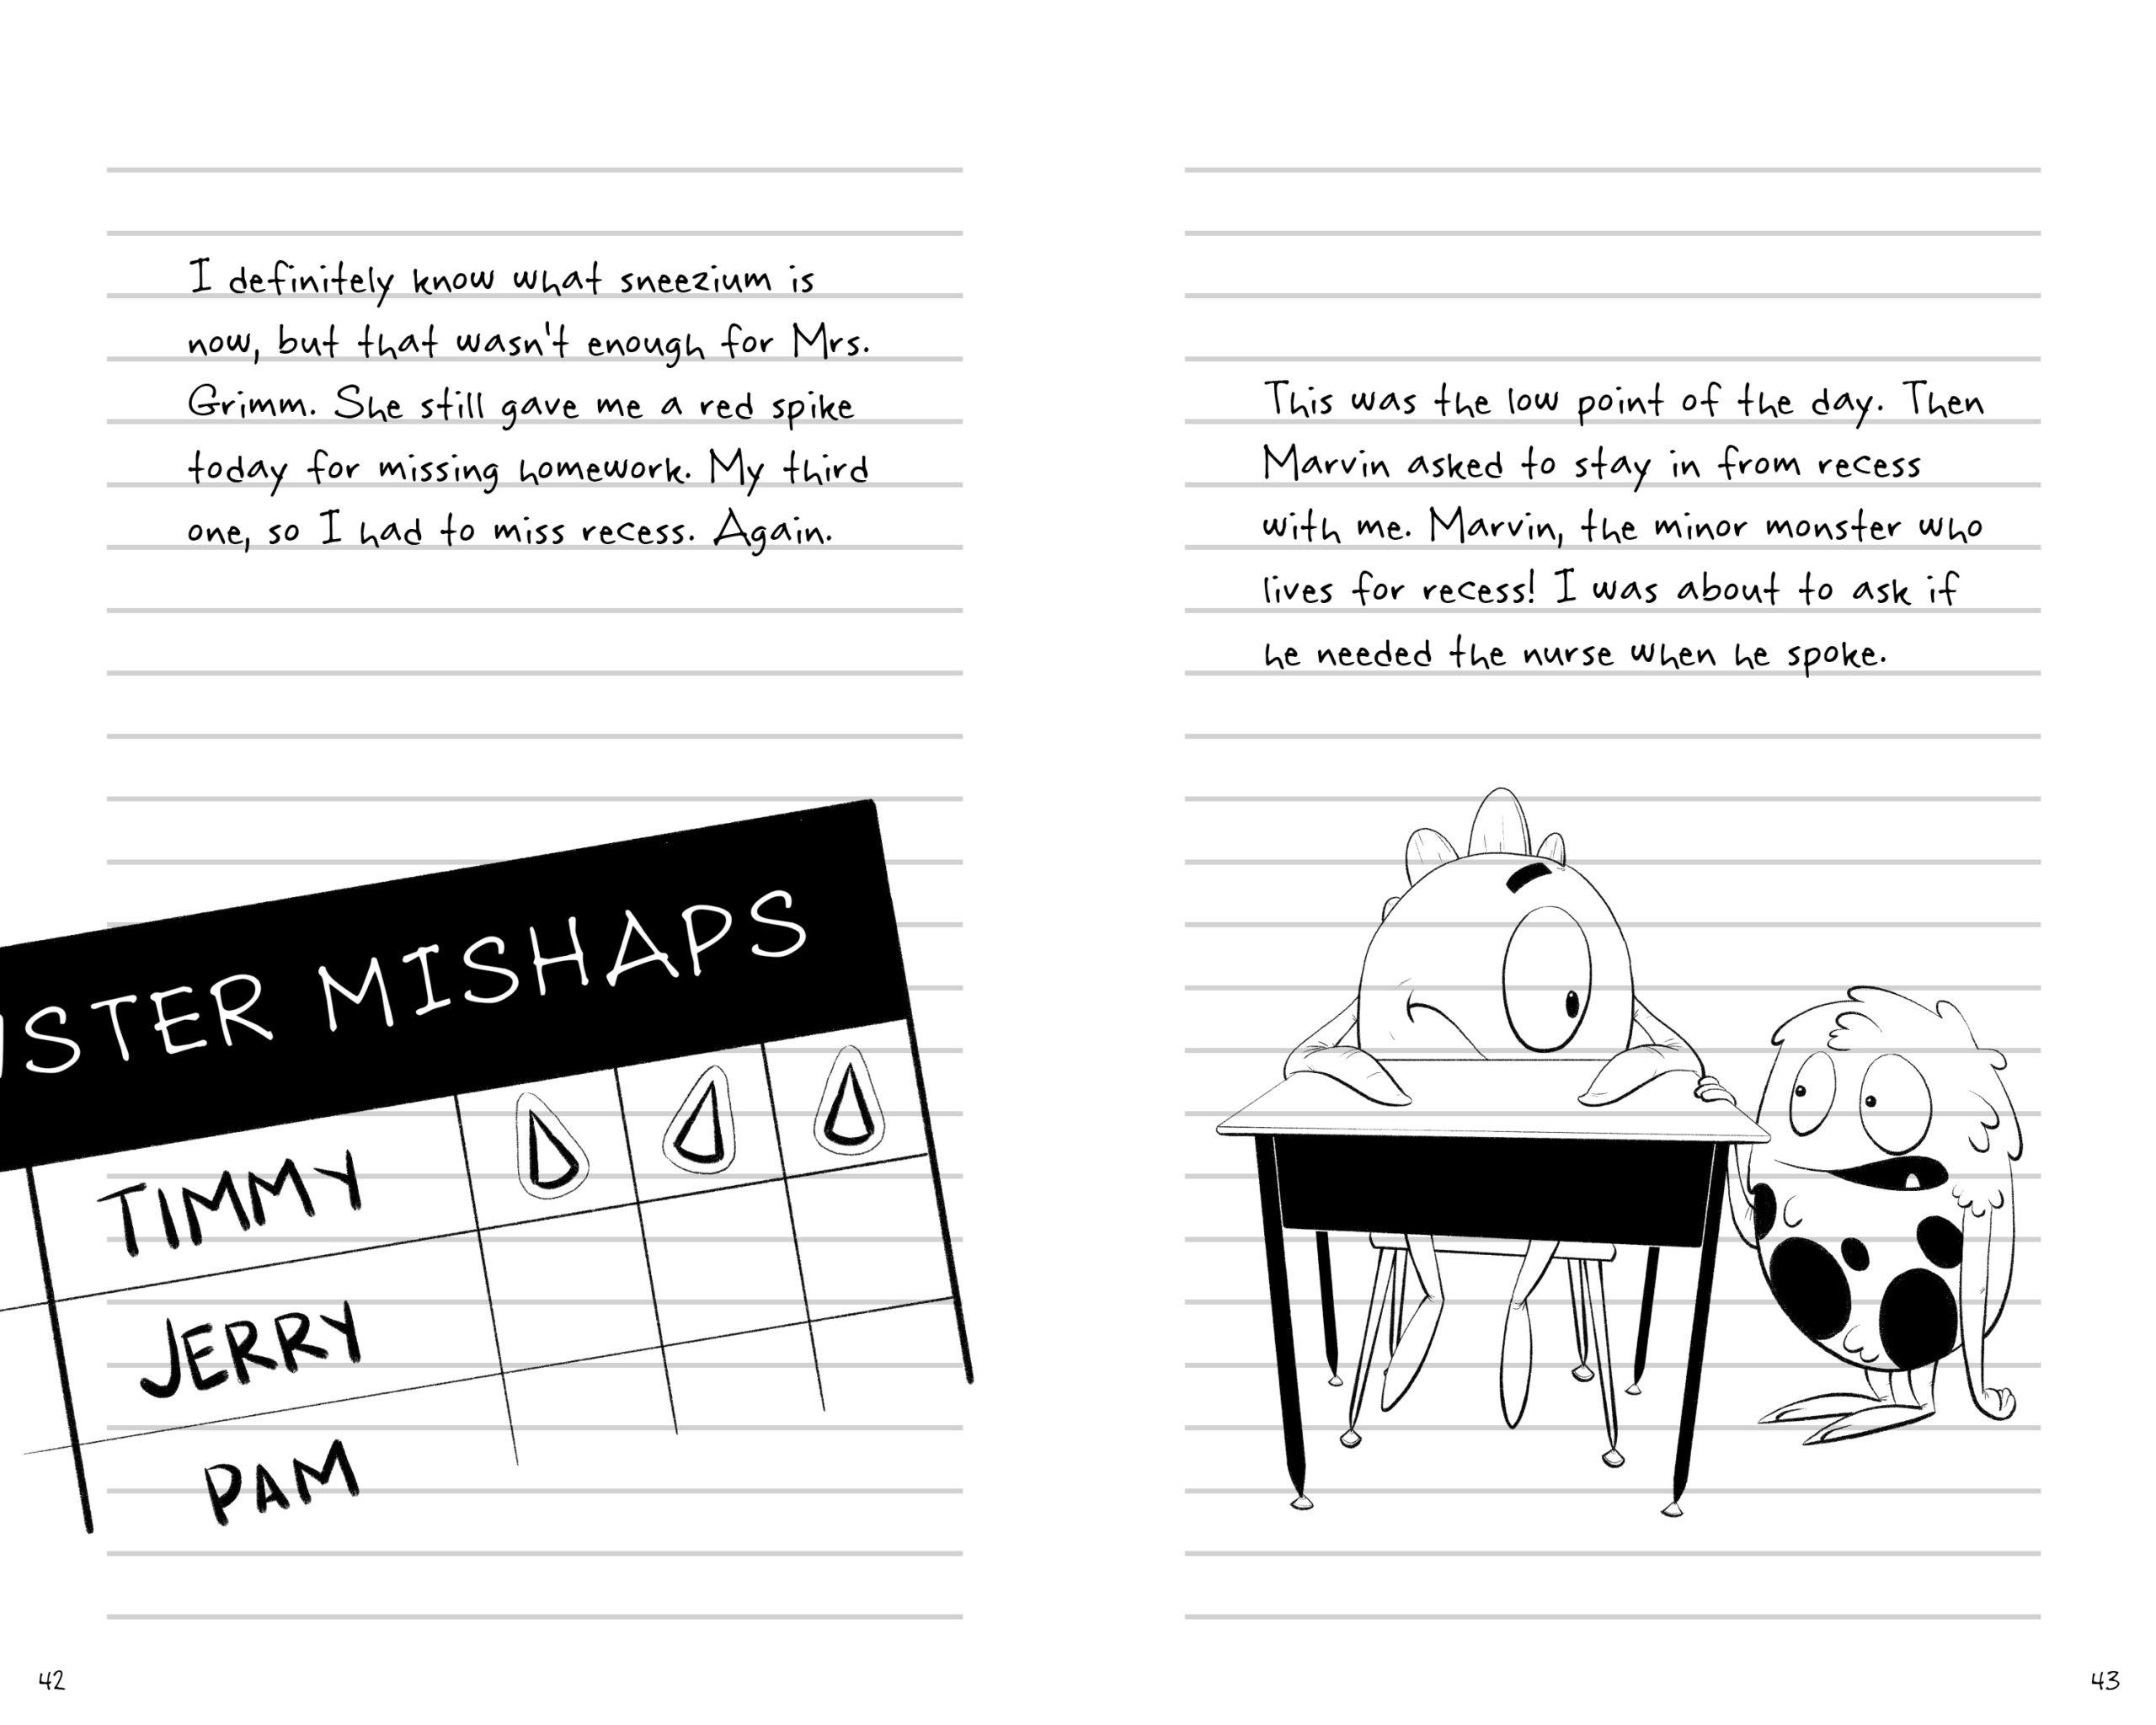 I definitely know what sneezium is
now, but that wasn't enough for Mrs.
Grimm. She still gave me a red spike
today for missing homework. My third
one, so I had to miss recess. Again.
STER MISHAPS
TIMMY
JERRY
PAM
42
This was the low point of the day. Then
Marvin asked to stay in from recess
with me. Marvin, the minor monster who
lives for recess! I was about to ask if
he needed the nurse when he spoke.
43